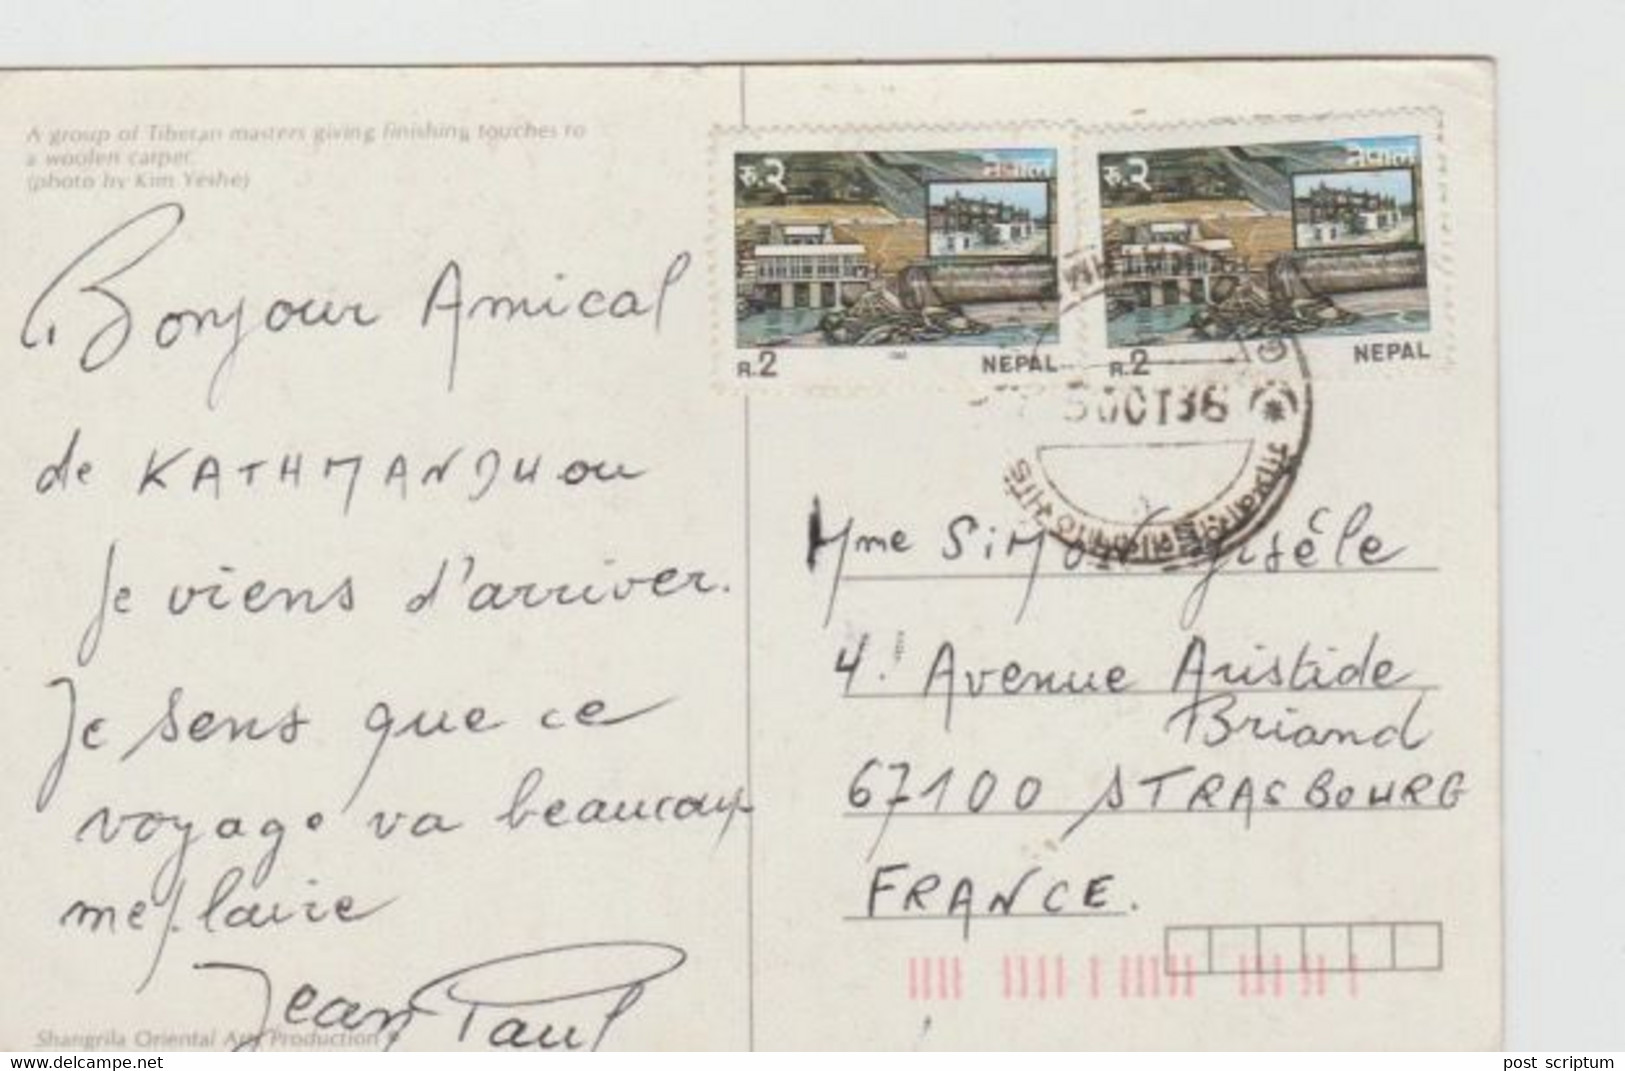 A group of Tibetan masters giving finishing touches to
a woolen carpet.
(photo by Kim Yeshe)
Bonjour Amical
de KATHMANDHou
Je viens d'arriver.
Je sens que ce
voyage va beaucoup
me plaire
Jean Paul
Shangrila Oriental Arts Production
रु.२
नेपाल
R.2
NEPAL
रु.२
नेपाल
R.2
NEPAL
OCT 86
Mme SiMON Gisèle
4. Avenue Aristide
Briand
67100 STRASBOURG
FRANCE.
post scriptum